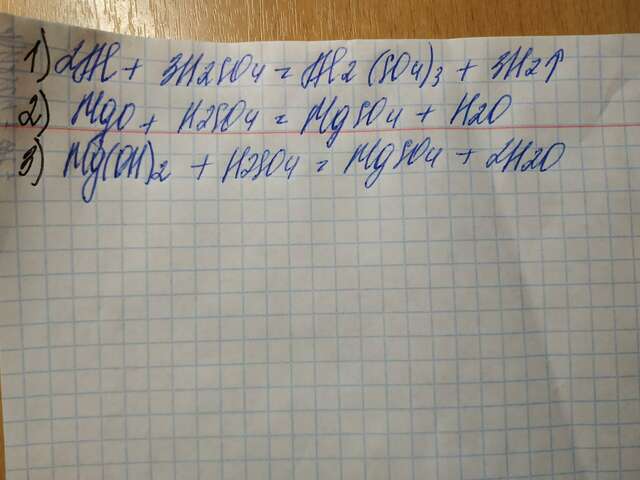 1) 2Al + 3H2SO4 = Al2(SO4)3 + 3H2↑
2) MgO + H2SO4 = MgSO4 + H2O
3) Mg(OH)2 + H2SO4 = MgSO4 + 2H2O